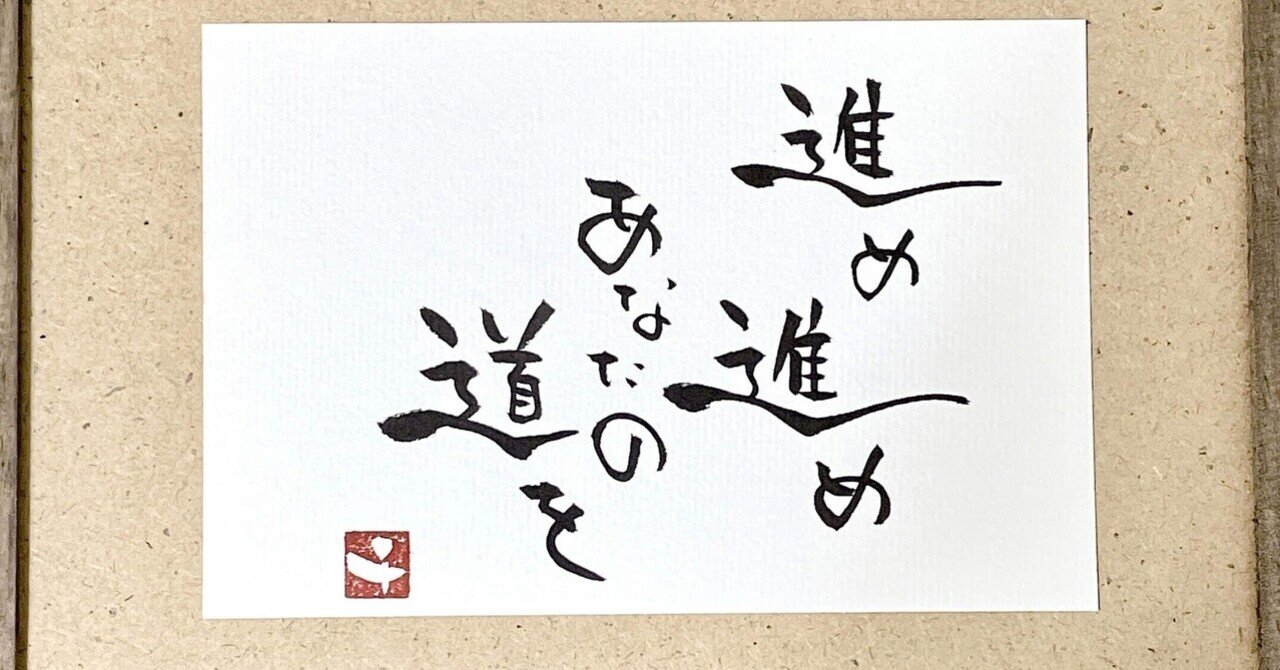 進め
進め
あなたの
道を